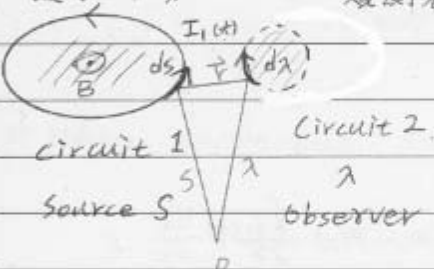 I₁(t)
ds r dλ
B
circuit 1 Circuit 2
S λ λ
Source S Observer